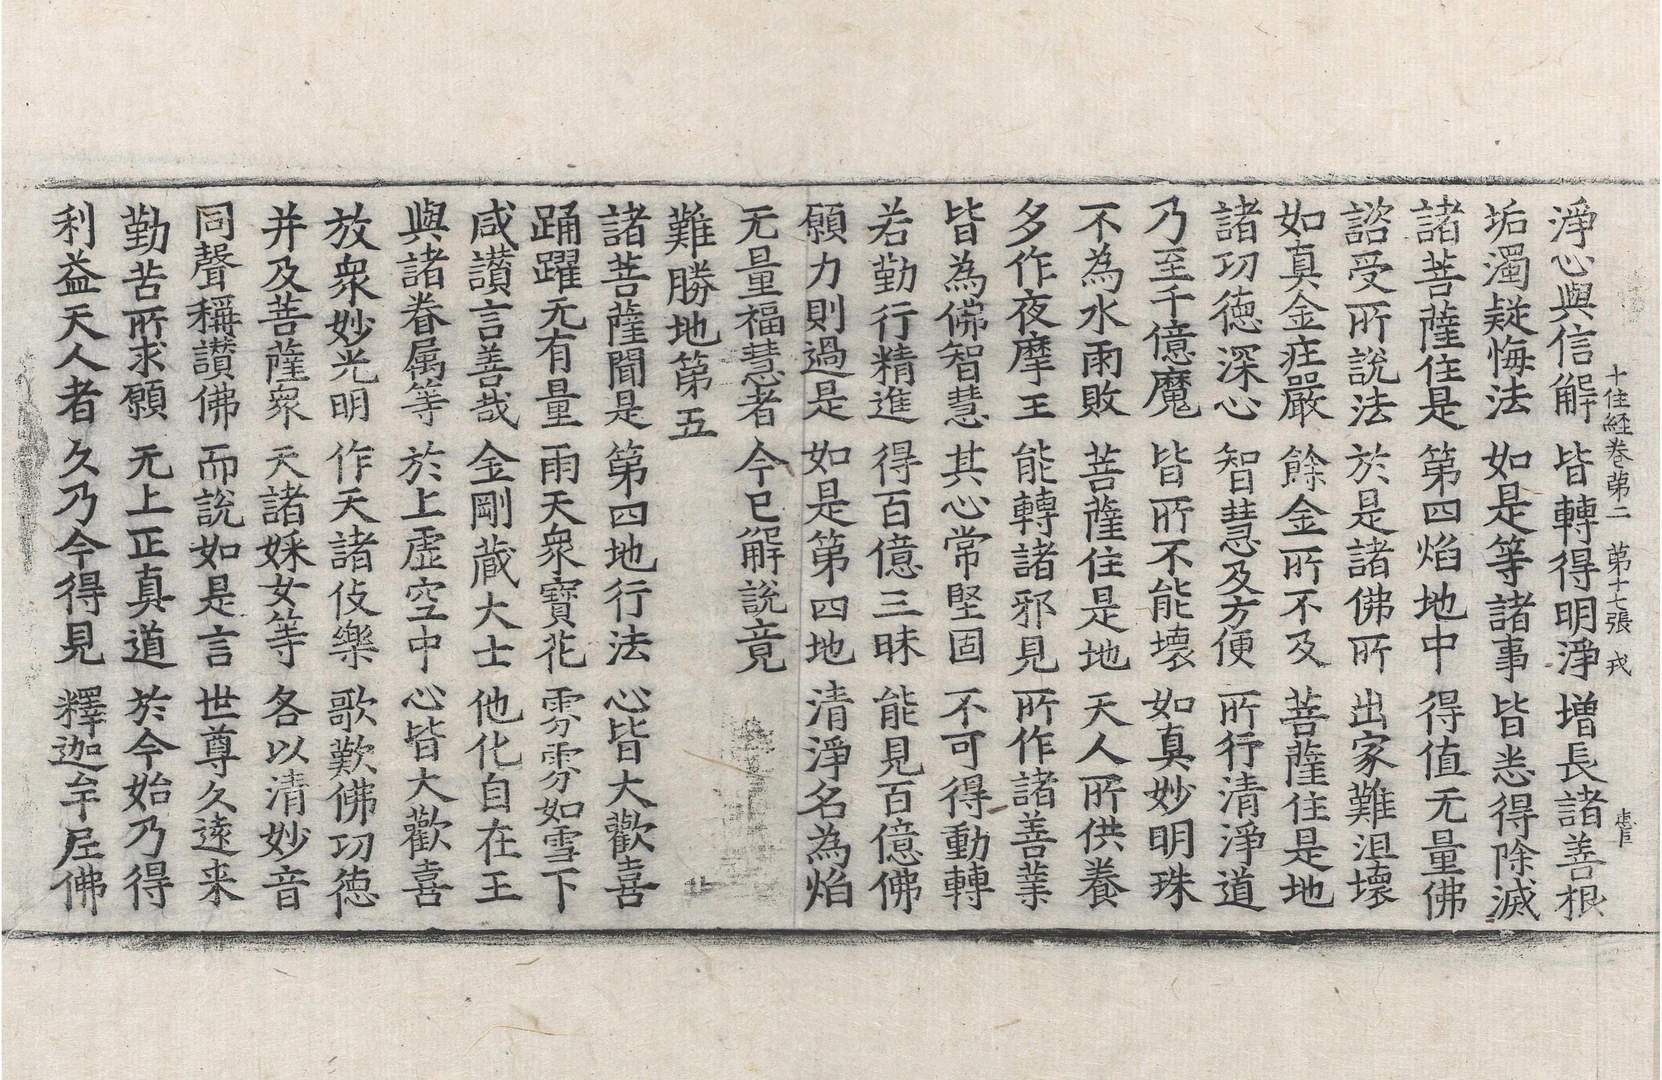 十住経卷第二　第十七張　戎
淨心與信解　皆轉得明淨　增長諸善根
垢濁疑悔法　如是等諸事　皆悉得除滅
諸菩薩住是　第四焰地中　得值无量佛
諮受所說法　於是諸佛所　出家難沮壞
如真金㽵嚴　餘金所不及　菩薩住是地
諸功徳深心　智慧及方便　所行清淨道
乃至千億魔　皆所不能壞　如真妙明珠
不為水雨敗　菩薩住是地　天人所供養
多作夜摩王　能轉諸邪見　所作諸善業
皆為佛智慧　其心常堅固　不可得動轉
若勤行精進　得百億三昧　能見百億佛
願力則過是　如是第四地　清淨名為焰
无量福慧者　今已解說竟
難勝地第五
諸菩薩聞是　第四地行法　心皆大歡喜
踊躍无有量　雨天衆寶花　雰雰如雪下
咸讃言善哉　金剛蔵大士　他化自在王
與諸眷属等　於上虛空中　心皆大歡喜
放衆妙光明　作天諸伎樂　歌歎佛功徳
并及菩薩衆　天諸婇女等　各以清妙音
同聲稱讃佛　而說如是言　世尊久遠来
勤苦所求願　无上正真道　於今始乃得
利益天人者　久乃今得見　釋迦牟尼佛